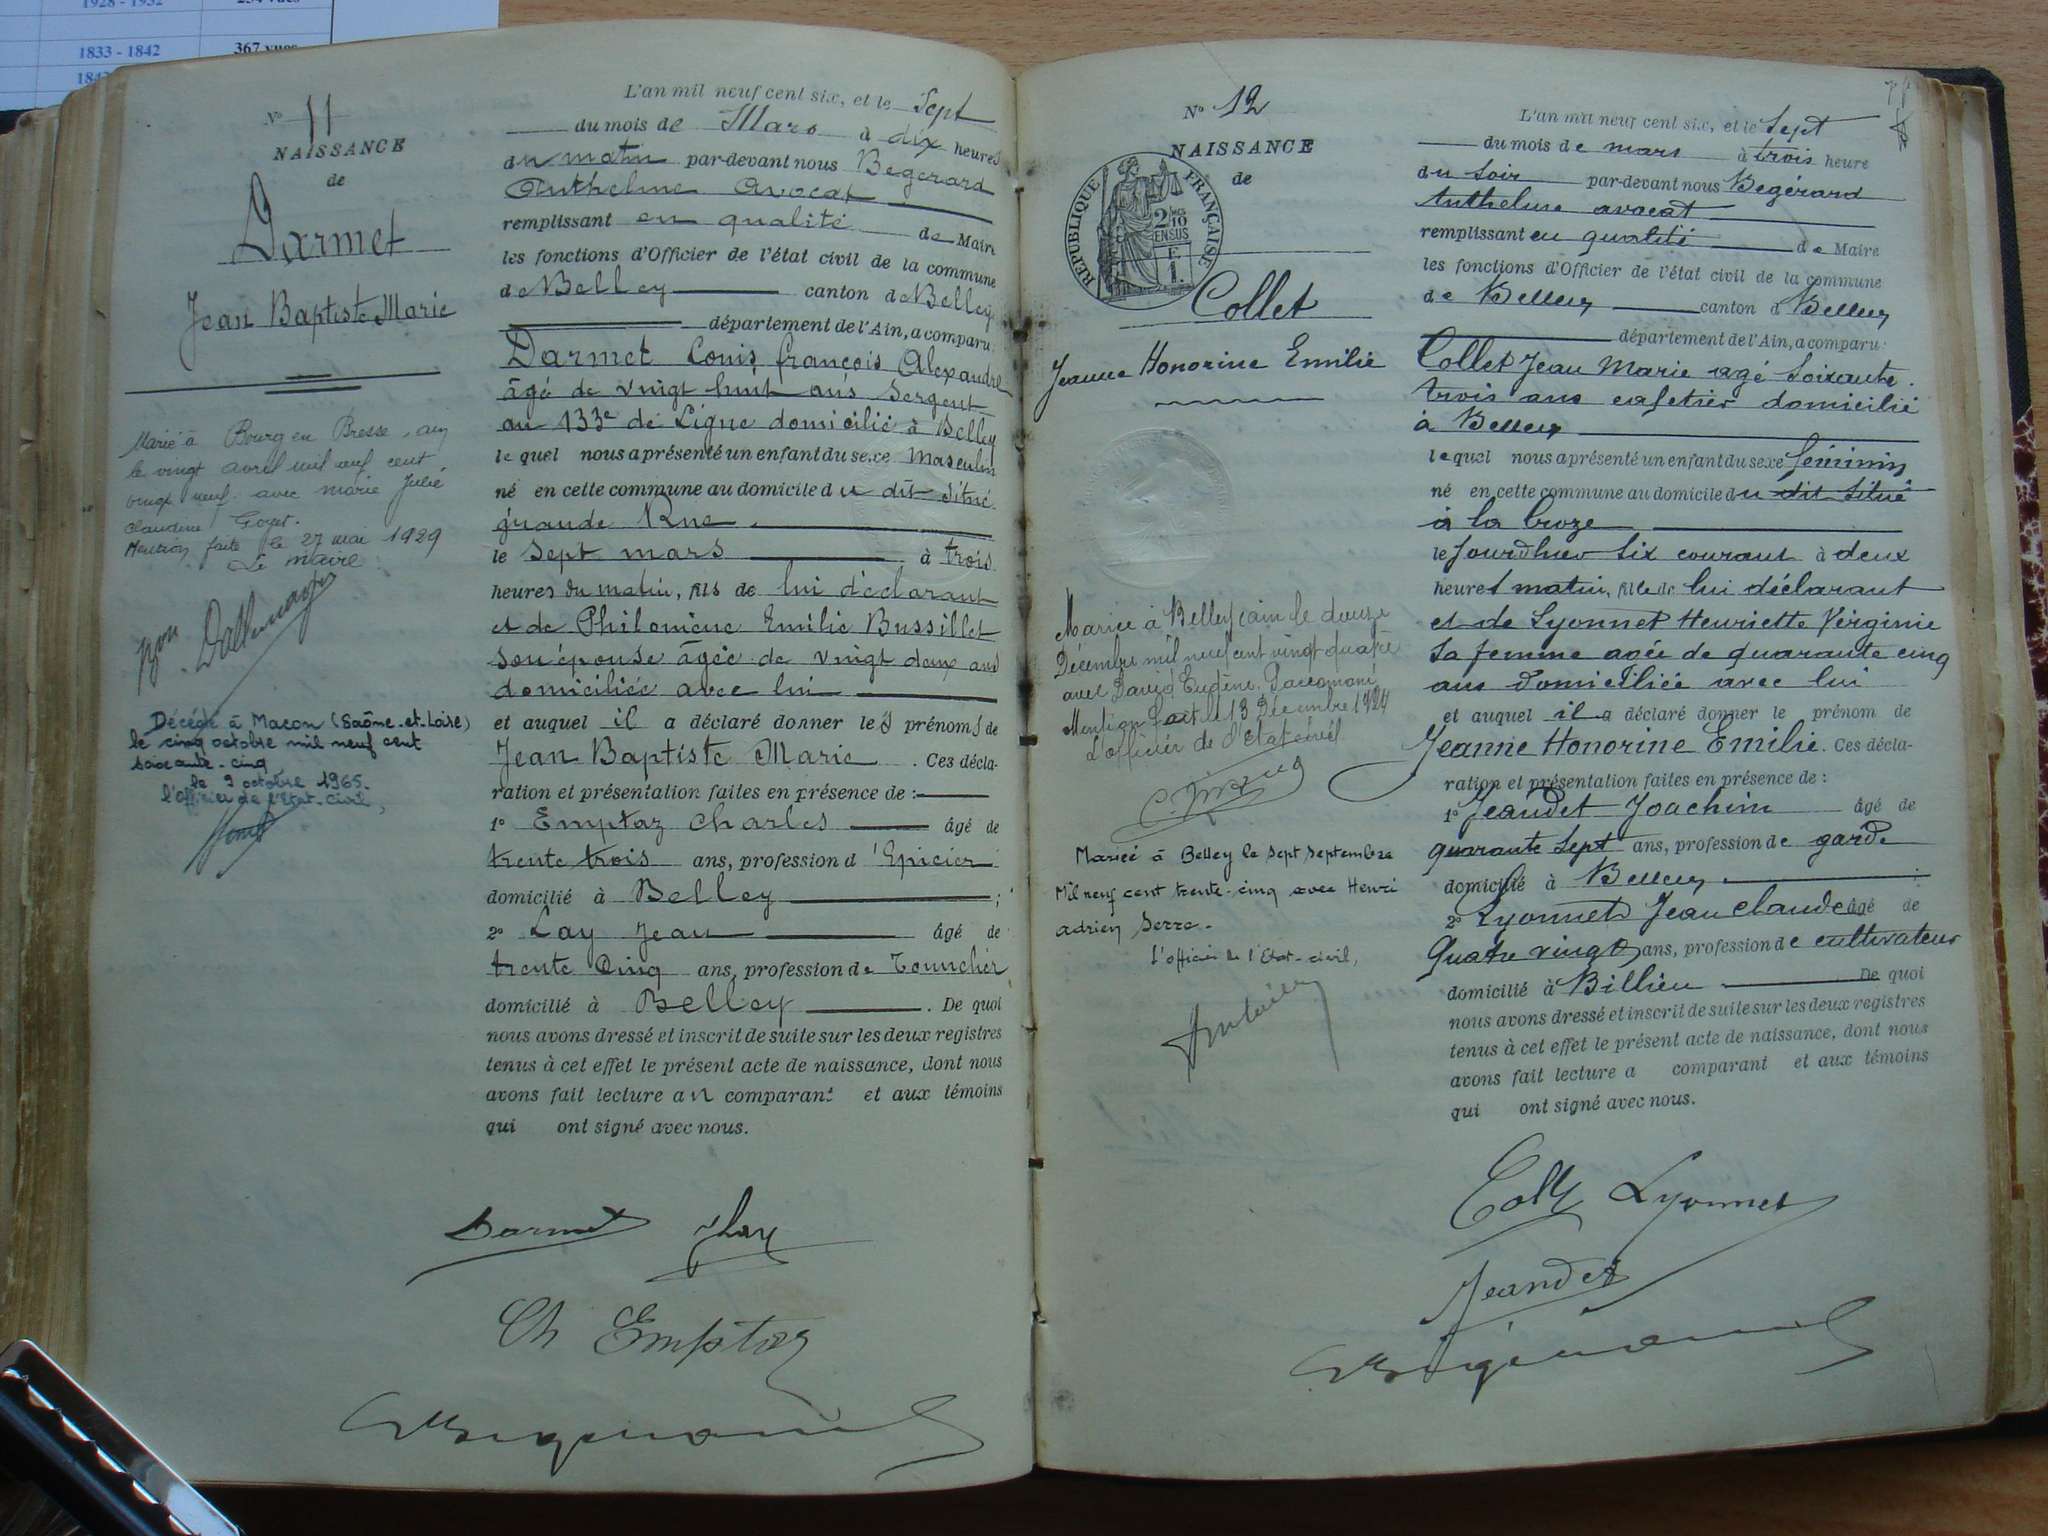 1928 - 1932
254 vues
1833 - 1842
367 vues
N° 11
NAISSANCE
de
Darmet
Jean Baptiste Marie
Marié à Bourg en Bresse, ain
le vingt avril mil neuf cent
vingt neuf avec Marie Julie
Claudine Goyet.
Mention faite le 27 mai 1929
Le maire
Décédé à Macon (Saône-et-Loire)
le cinq octobre mil neuf cent
soixante-cinq
le 9 octobre 1965.
l'officier de l'Etat-civil,
L'an mil neuf cent six, et le Sept
du mois de Mars à dix heures
du matin par-devant nous Begerard
Anthelme avocat
remplissant en qualité de Maire
les fonctions d'Officier de l'état civil de la commune
de Belley canton de Belley
département de l'Ain, a comparu
Darmet Louis françois Alexandre
âgé de vingt huit ans Sergent
au 133e de Ligne domicilié à Belley
lequel nous a présenté un enfant du sexe masculin
né en cette commune au domicile du dit situé
grande Rue
le sept mars à trois
heures du matin, fils de lui déclarant
et de Philomène Emilie Bussillet
son épouse âgée de vingt deux ans
domiciliée avec lui
et auquel il a déclaré donner les prénoms de
Jean Baptiste Marie . Ces décla-
ration et présentation faites en présence de :
1° Emptaz Charles âgé de
trente trois ans, profession d'Epicier
domicilié à Belley ;
2° Lay Jean âgé de
trente cinq ans, profession de Tonnelier
domicilié à Belley . De quoi
nous avons dressé et inscrit de suite sur les deux registres
tenus à cet effet le présent acte de naissance, dont nous
avons fait lecture au comparant et aux témoins
qui ont signé avec nous.
Darmet JLay
Ch Emptaz
N° 12
NAISSANCE
de
RÉPUBLIQUE FRANÇAISE
2/10 EN SUS
Collet
Jeanne Honorine Emilie
Mariée à Belley (ain) le douze
Décembre mil neuf cent vingt quatre
avec David Eugène
Mention faite le 13 Décembre 1924
L'officier de l'Etat civil
Mariée à Belley le sept septembre
Mil neuf cent trente-cinq avec Henri
adrien Serre.
L'officier de l'Etat-civil,
L'an mil neuf cent six, et le Sept
du mois de mars à trois heure
du soir par-devant nous Begérard
Anthelme avocat
remplissant en qualité de Maire
les fonctions d'Officier de l'état civil de la commune
de Belley canton d Belley
département de l'Ain, a comparu :
Collet Jean Marie agé soixante
trois ans cafetier domicilié
à Belley
lequel nous a présenté un enfant du sexe féminin
né en cette commune au domicile du dit situé
à la Croze
le Jourdhier six courant à deux
heures matin, fille de lui déclarant
et de Lyonnet Henriette Virginie
sa femme agée de quarante cinq
ans domiciliée avec lui
et auquel il a déclaré donner le prénom de
Jeanne Honorine Emilie. Ces décla-
ration et présentation faites en présence de :
1° Jeandet Joachim âgé de
quarante sept ans, profession de garde
domicilié à Belley ;
2° Lyonnet Jean Claude âgé de
Quatre vingt ans, profession de cultivateur
domicilié à Billieu De quoi
nous avons dressé et inscrit de suite sur les deux registres
tenus à cet effet le présent acte de naissance, dont nous
avons fait lecture a comparant et aux témoins
qui ont signé avec nous.
Lyonnet
Jeandet